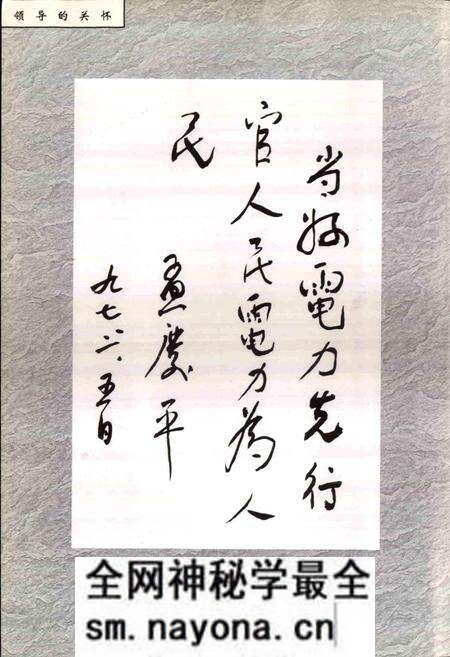 领导的关怀
当好電力先行
官人民電力為人
民
孟慶平
九七六、五日
全网神秘学最全
sm.nayona.cn